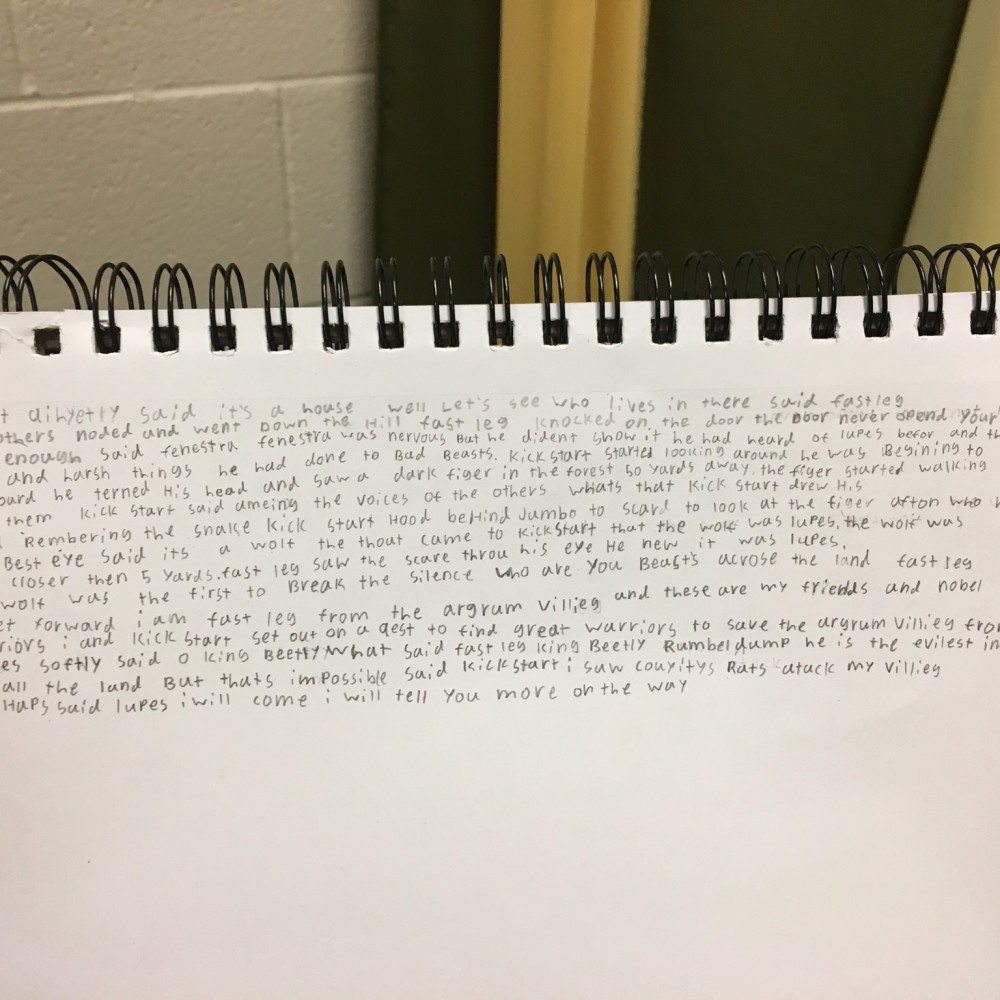 said it's a house well Let's see who lives in there said fastleg
others noded and went Down the Hill fast leg knocked on the door the Door never opend your
enough said fenestra fenestra was nervous But he dident show it he had heard of lupes befor and th
and harsh things he had done to Bad Beasts. Kick start started looking around he was Begining to
he terned His head and saw a dark figer in the forest 50 yards away. the figer started walking
them Kick start said ameing the voices of the others whats that Kick start drew His
Rembering the snake Kick start Hood beHind Jumbo to scard to look at the figer afton who
Best eye said its a wolf the thout came to Kickstart that the wolf was lupes. the wolf was
closer then 5 yards. fast leg saw the scare throu his eye He new it was lupes.
wolf was the first to Break the silence who are you Beasts acrose the land fastleg
forward i am fast leg from the argrum villieg and these are my friends and nobel
riors i and Kick start set out on a qest to find great warriors to save the argrum villieg fro
es softly said o king Beetly what said fast leg king Beetly Rumbeldump he is the evilest in
all the land But thats impossible said Kickstart i saw couyitys Rats atack my villieg
Haps said lupes i will come i will tell you more on the way